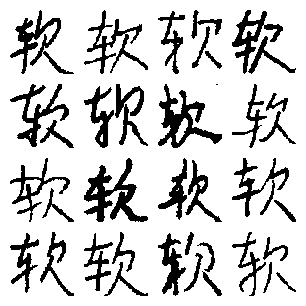 软软软软
软软软软
软软软软
软软软软